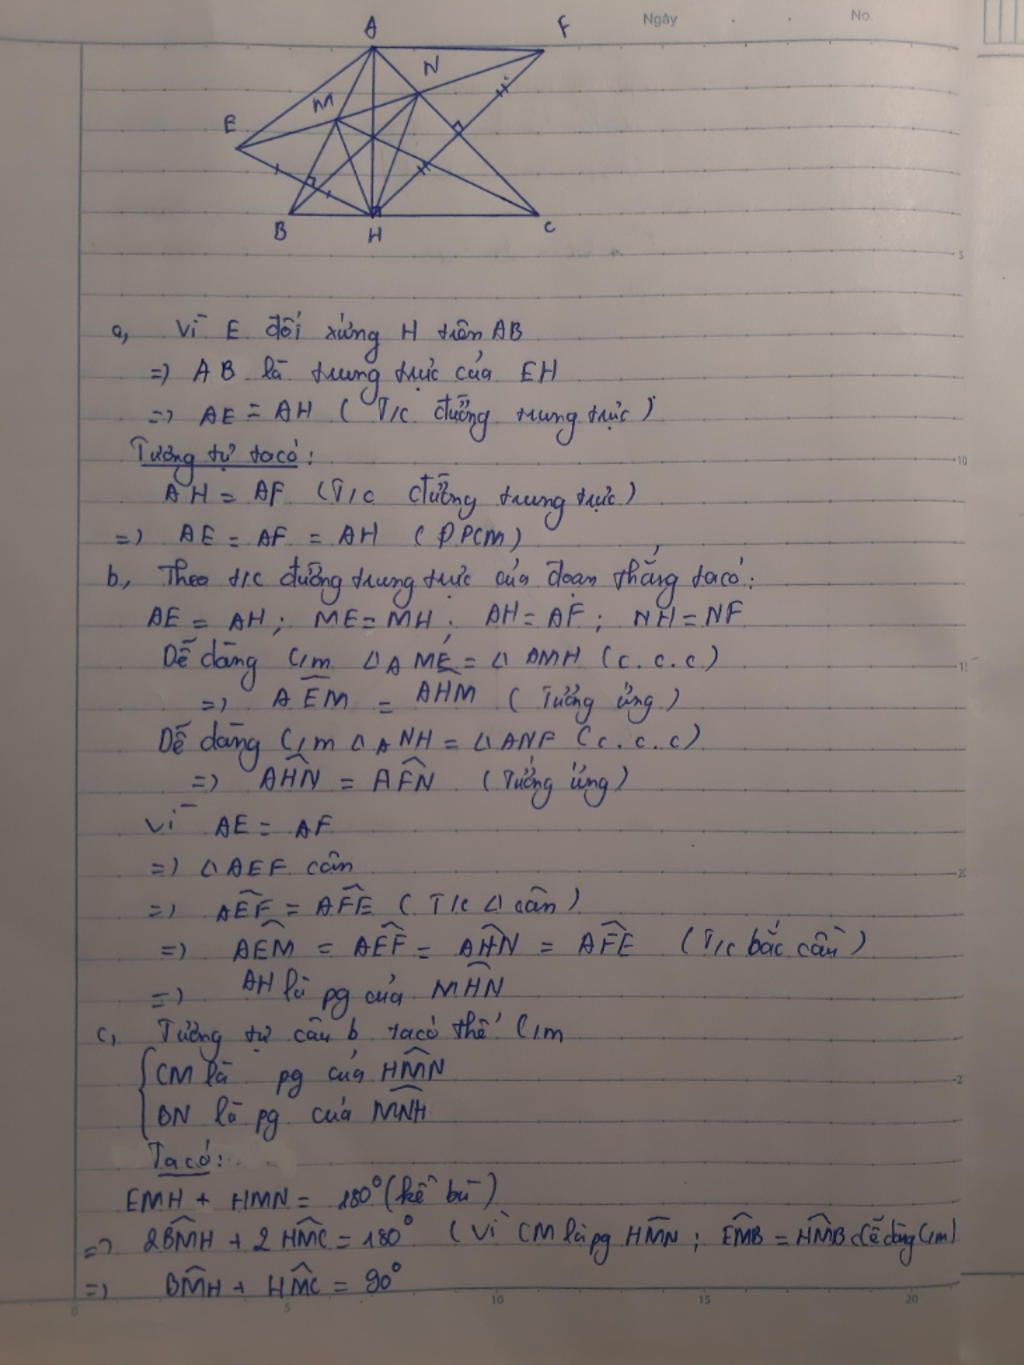 Ngày
No.
A
F
N
M
E
B
H
C
a, Vì E đối xứng H trên AB
=) AB là trung trực của EH
=) AE = AH ( T/c đường trung trực )
Tương tự ta có :
AH = AF (T/c đường trung trực)
=) AE = AF = AH ( ĐPCM )
b, Theo t/c đường trung trực của đoạn thẳng ta có :
AE = AH ; ME = MH ; AH = AF ; NH = NF
Dễ dàng C/m △AME = △AMH (c.c.c)
=) AEM = AHM ( Tương ứng )
Dễ dàng C/m △ANH = △ANF (c.c.c)
=) AHN = AFN ( Tương ứng )
Vì AE = AF
=) △AEF cân
=) AEF = AFE ( T/c △ cân )
=) AEM = AEF = AHN = AFE (T/c bắc cầu )
=) AH là pg của MHN
c, Tương tự câu b ta có thể C/m
CM là pg của HMN
BN là pg của MNH
Ta có :
EMH + HMN = 180° (kề bù )
=) 2BMH + 2HMC = 180° ( Vì CM là pg HMN ; EMB = HMB dễ dàng C/m)
=) BMH + HMC = 90°
5
10
15
20
2
0
5
10
15
20